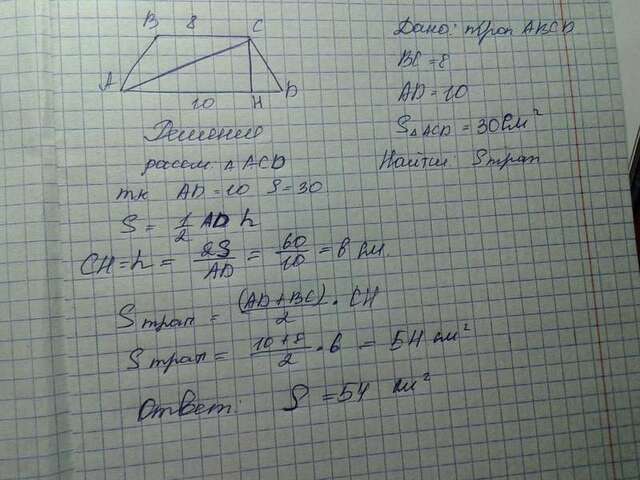 B 8 C
A 10 H D
Дано: трап ABCD
BC = 8
AD = 10
S△ACD = 30см²
Найти: Sтрап
Решение
рассм △ ACD
тк AD = 10 S = 30
S = 1/2 AD h
CH = h = 2S/AD = 60/10 = 6 см.
Sтрап = (AD + BC)/2 · CH
Sтрап = 10 + 8/2 · 6 = 54 см²
Ответ: S = 54 см²